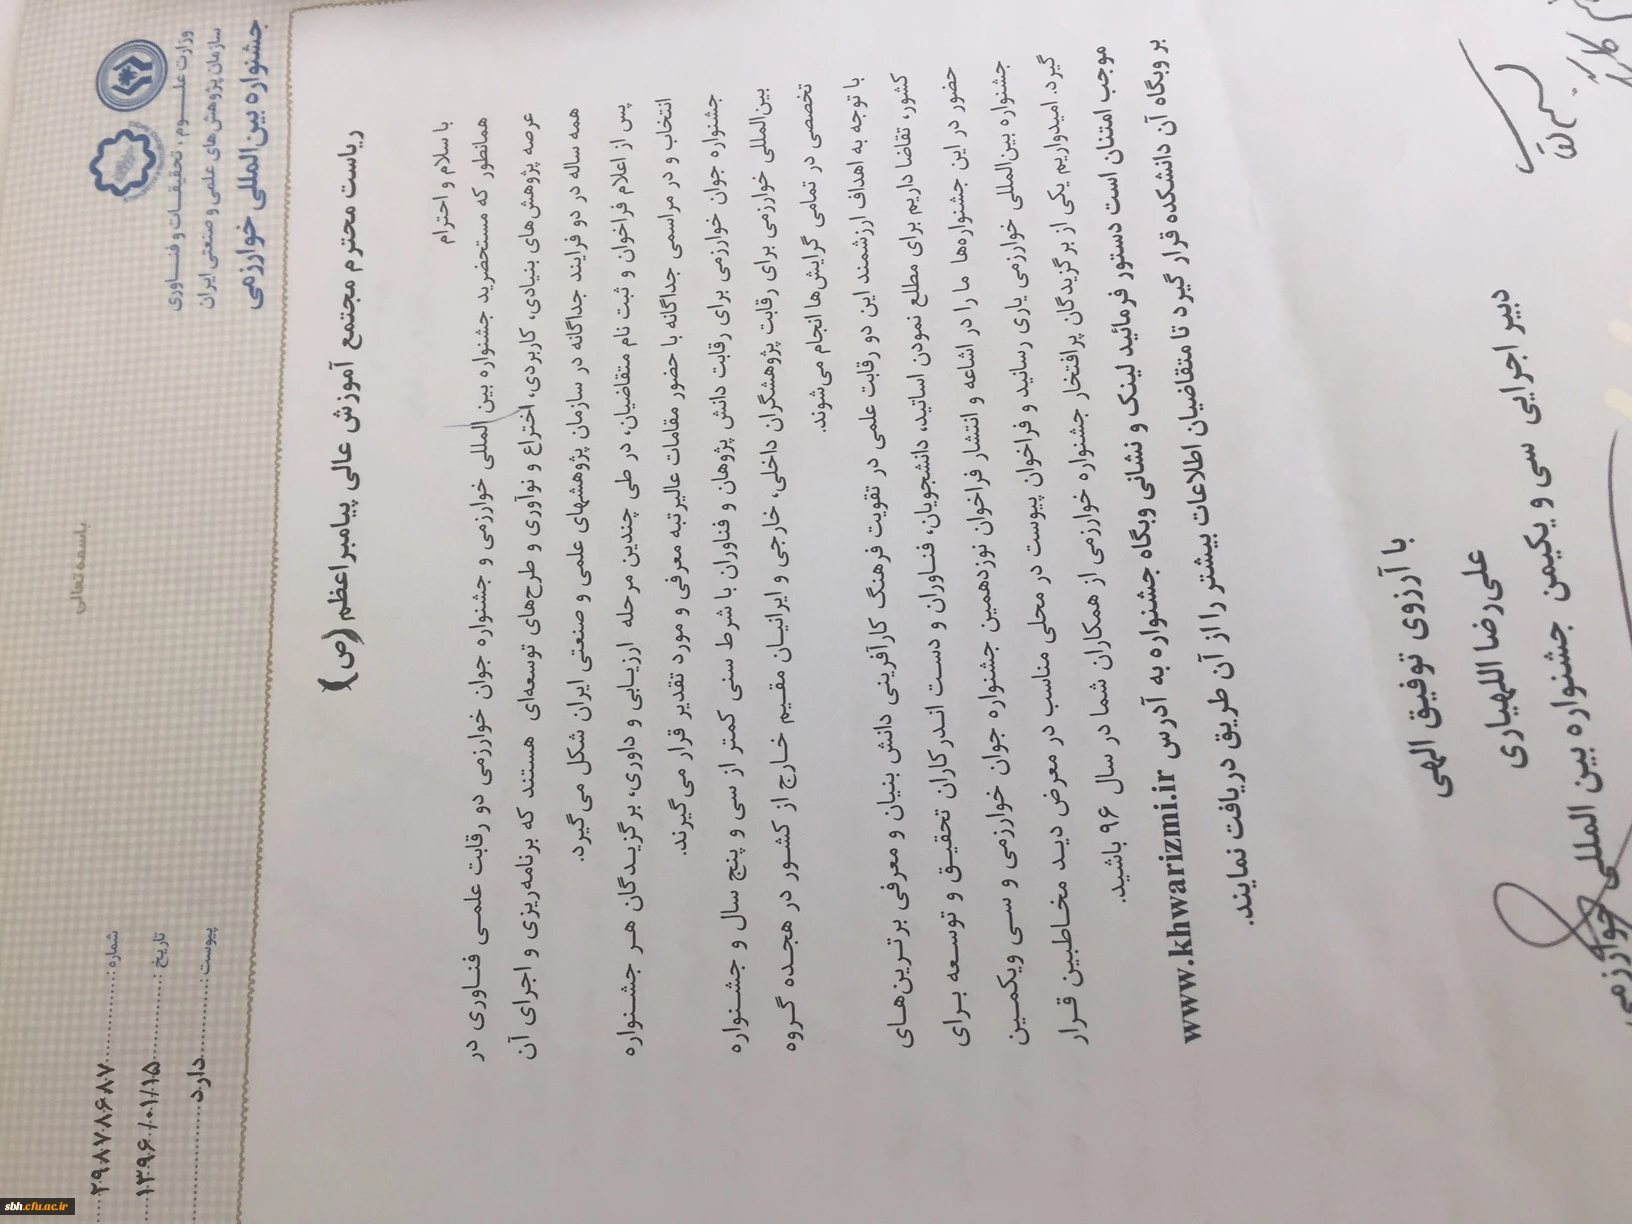 باسمه تعالی
وزارت علوم، تحقیقات و فناوری
سازمان پژوهش‌های علمی و صنعتی ایران
جشنواره بین‌المللی خوارزمی
شماره: ۲۹۸۷۷۸۶۸۷
تاریخ: ۱۳۹۶/۰۱/۱۵
پیوست: دارد
ریاست محترم مجتمع آموزش عالی پیامبراعظم (ص)
با سلام و احترام
همانطور که مستحضرید جشنواره بین المللی خوارزمی و جشنواره جوان خوارزمی دو رقابت علمی فناوری در
عرصه پژوهش‌های بنیادی، کاربردی، اختراع و نوآوری و طرح‌های توسعه‌ای هستند که برنامه‌ریزی و اجرای آن
همه ساله در دو فرایند جداگانه در سازمان پژوهشهای علمی و صنعتی ایران شکل می‌گیرد.
پس از اعلام فراخوان و ثبت نام متقاضیان، در طی چندین مرحله ارزیابی و داوری، برگزیدگان هر جشنواره
انتخاب و در مراسمی جداگانه با حضور مقامات عالیرتبه معرفی و مورد تقدیر قرار می‌گیرند.
جشنواره جوان خوارزمی برای رقابت دانش پژوهان و فناوران با شرط سنی کمتر از سی و پنج سال و جشنواره
بین‌المللی خوارزمی برای رقابت پژوهشگران داخلی، خارجی و ایرانیان مقیم خارج از کشور در هجده گروه
تخصصی در تمامی گرایش‌ها انجام می‌شوند.
با توجه به اهداف ارزشمند این دو رقابت علمی در تقویت فرهنگ کارآفرینی دانش بنیان و معرفی برترین‌های
کشور، تقاضا داریم برای مطلع نمودن اساتید، دانشجویان، فناوران و دست اندرکاران تحقیق و توسعه برای
حضور در این جشنواره‌ها ما را در اشاعه و انتشار فراخوان نوزدهمین جشنواره جوان خوارزمی و سی ویکمین
جشنواره بین‌المللی خوارزمی یاری رسانید و فراخوان پیوست در محلی مناسب در معرض دید مخاطبین قرار
گیرد. امیدواریم یکی از برگزیدگان پرافتخار جشنواره خوارزمی از همکاران شما در سال ۹۶ باشید.
موجب امتنان است دستور فرمائید لینک و نشانی وبگاه جشنواره به آدرس www.khwarizmi.ir
بر وبگاه آن دانشکده قرار گیرد تا متقاضیان اطلاعات بیشتر را از آن طریق دریافت نمایند.
با آرزوی توفیق الهی
علی‌رضا اللهیاری
دبیر اجرایی سی و یکیمن جشنواره بین المللی خوارزمی
sbh.cfu.ac.ir